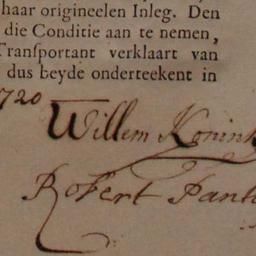 haar origineelen Inleg. Den
die Conditie aan te nemen,
Transportant verklaart van
dus beyde onderteekent in
1720
Willem Konink
Robert